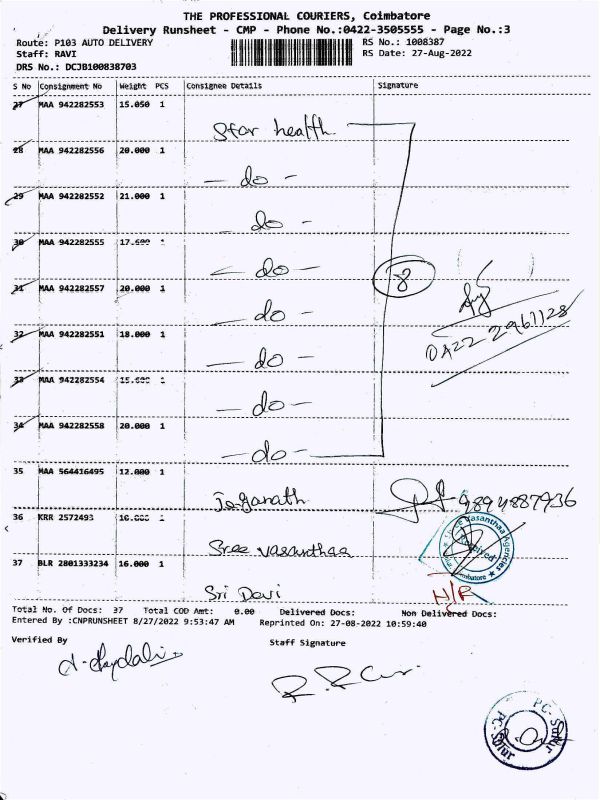 THE PROFESSIONAL COURIERS, Coimbatore
Delivery Runsheet - CMP - Phone No.:0422-3505555 - Page No.:3
Route: P103 AUTO DELIVERY RS No.: 1008387
Staff: RAVI RS Date: 27-Aug-2022
DRS No.: DCJB100838703
S No Consignment No Weight PCS Consignee Details Signature
27 MAA 942282553 15.050 1
Star health
28 MAA 942282556 20.000 1
- do -
29 MAA 942282552 21.000 1
- do -
30 MAA 942282555 17.600 1
- do -
8
31 MAA 942282557 20.000 1
- do -
0422 2961128
32 MAA 942282551 18.000 1
- do -
33 MAA 942282554 15.600 1
- do -
34 MAA 942282558 20.000 1
- do -
35 MAA 564416495 12.000 1
Jeganath 9894887936
36 KRR 2572493 10.000 1
Sree vasanthaa
37 BLR 2801333234 16.000 1
Sri Devi N/R
Total No. Of Docs: 37 Total COD Amt: 0.00 Delivered Docs: Non Delivered Docs:
Entered By :CNPRUNSHEET 8/27/2022 9:53:47 AM Reprinted On: 27-08-2022 10:59:40
Verified By Staff Signature
PC- Sulur
PC- Sulur